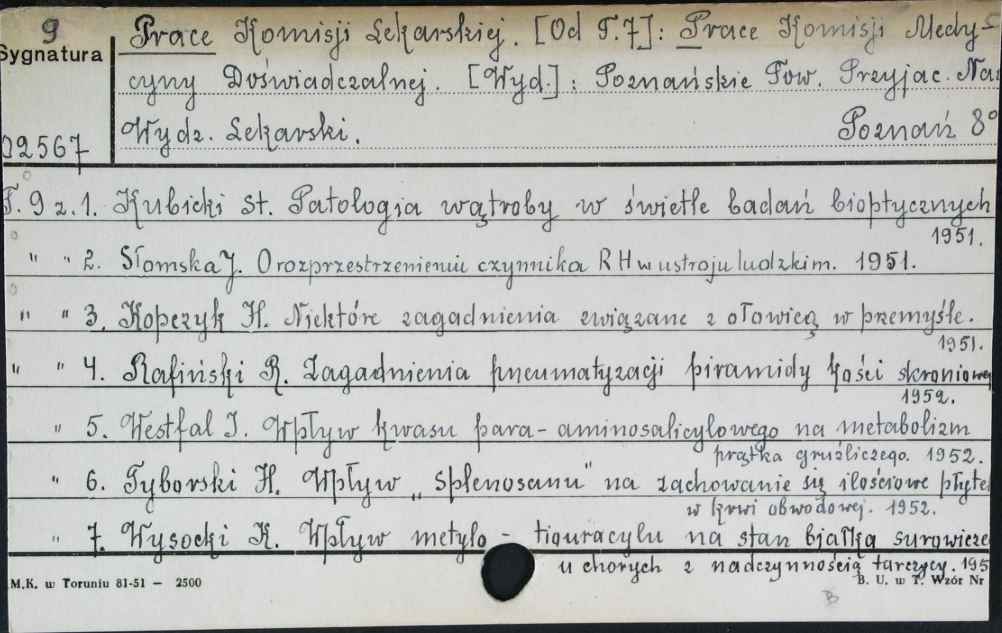 9 Prace Komisji Lekarskiej. [Od T.7]: Prace Komisji Medy-
Sygnatura
cyny Doświadczalnej. [Wyd.]: Poznańskie Tow. Przyjac. Na
02567 Wydz. Lekarski. Poznań 8°
T. 9 z. 1. Kubicki St. Patologja wątroby w świetle badań bioptycznych
1951.
" " 2. Słomska J. O rozprzestrzenieniu czynnika RH w ustroju ludzkim. 1951.
" " 3. Kopczyk H. Niektóre zagadnienia związane z ołowicą w przemyśle.
1951.
" " 4. Rafiński R. Zagadnienia pneumatyzacji piramidy kości skroniowej
1952.
" 5. Westfal I. Wpływ kwasu para-aminosalicylowego na metabolizm
prątka gruźliczego. 1952.
" 6. Tyborski H. Wpływ „Splenosanu" na zachowanie się ilościowe płyte
w krwi obwodowej. 1952.
" 7. Wysocki K. Wpływ metylo-tiouracylu na stan białka surowicze
u chorych z nadczynnością tarczycy. 195
M.K. w Toruniu 81-51 — 2500 B. U. w T. Wzór Nr
B